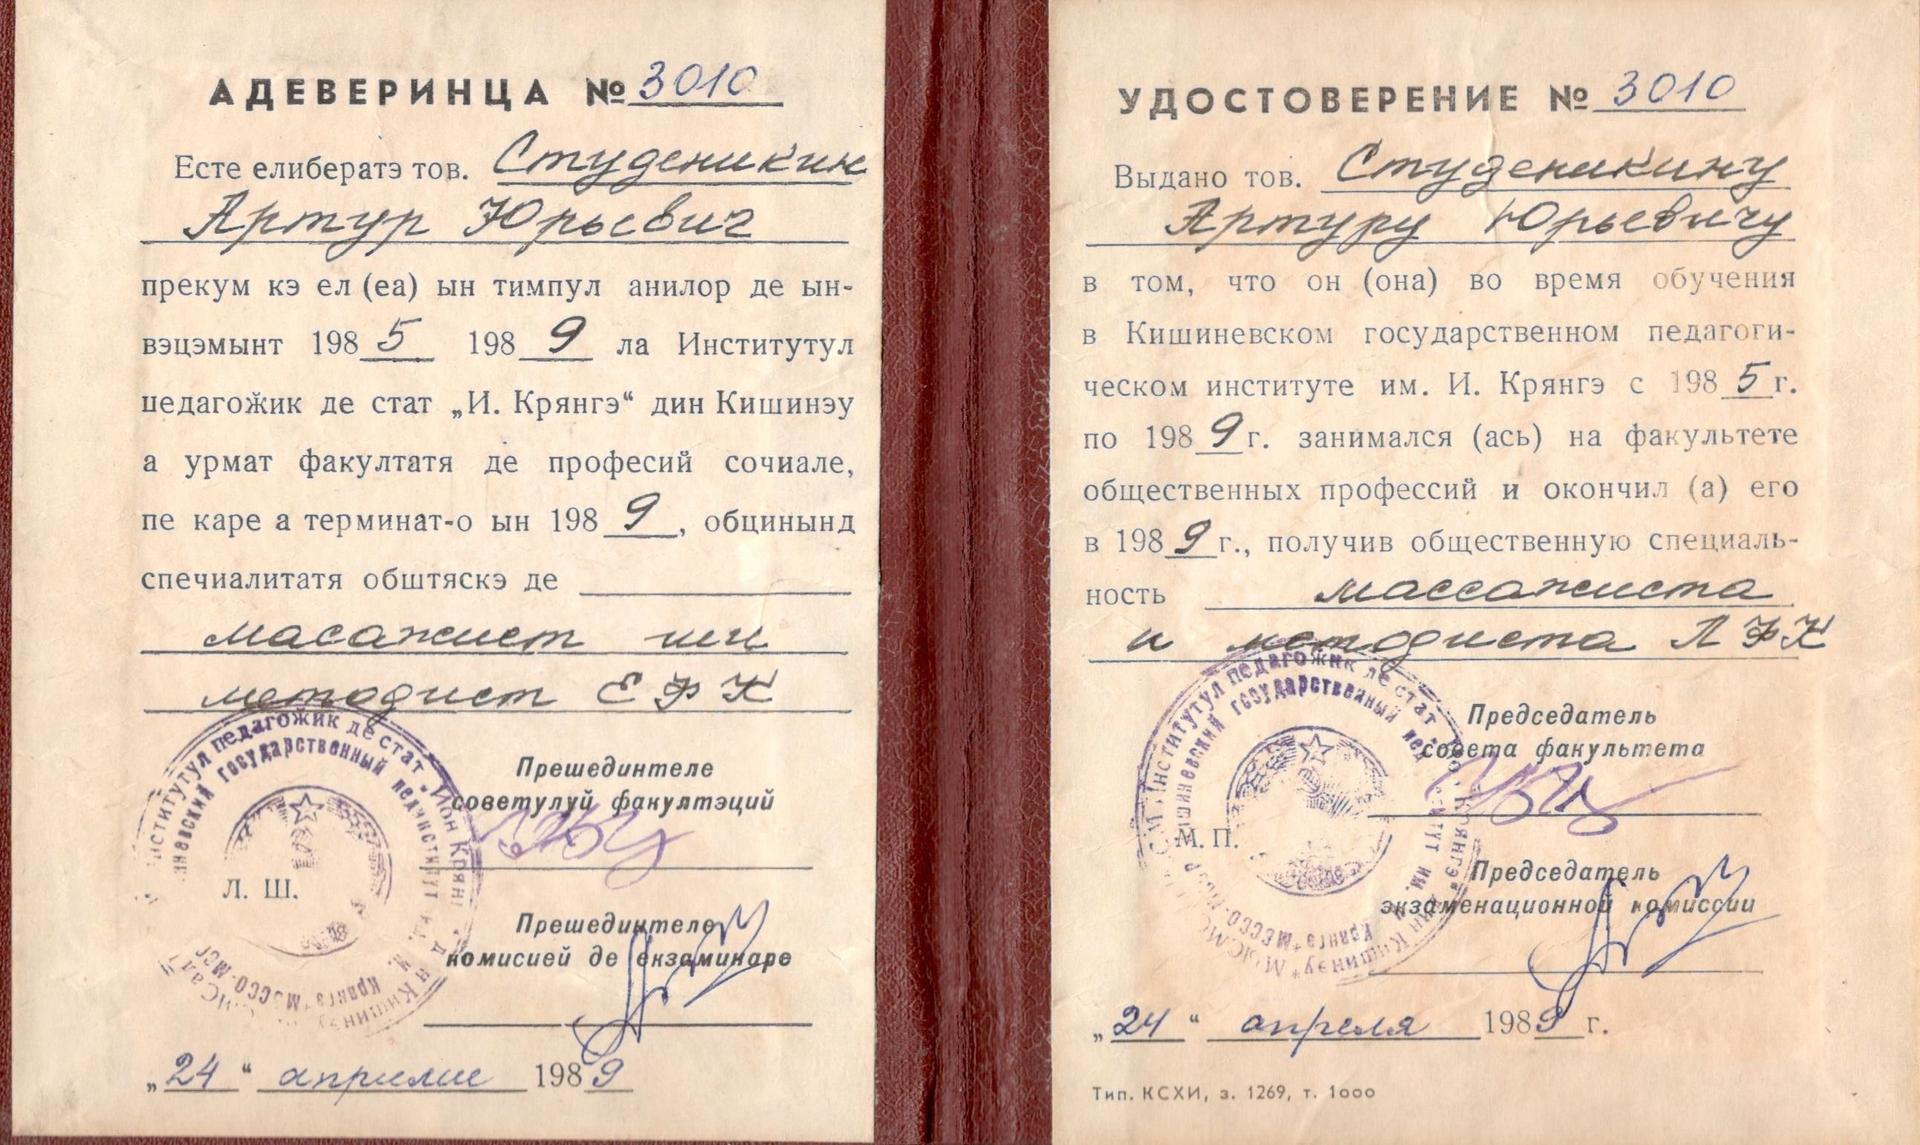 АДЕВЕРИНЦА № 3010
Есте елибератэ тов. Студеникин
Артур Юрьевич
прекум кэ ел (еа) ын тимпул анилор де ын-
вэцэмынт 1985 1989 ла Институтул
педагоӂик де стат „И. Крянгэ“ дин Кишинэу
а урмат факултатя де професий сочиале,
пе каре а терминат-о ын 1989, обцинынд
спечиалитатя обштяскэ де
масажист ши
методист ЕФК
Прешединтеле
советулуй факултэций
Л. Ш.
Прешединтеле
комисией де екзаминаре
„24“ априлие 1989
УДОСТОВЕРЕНИЕ № 3010
Выдано тов. Студеникину
Артуру Юрьевичу
в том, что он (она) во время обучения
в Кишиневском государственном педагоги-
ческом институте им. И. Крянгэ с 1985 г.
по 1989 г. занимался (ась) на факультете
общественных профессий и окончил (а) его
в 1989 г., получив общественную специаль-
ность массажиста
и методиста ЛФК
Институтул педагоӂик де стат
государственный
Председатель
совета факультета
М. П.
Председатель
экзаменационной комиссии
„24“ апреля 1989 г.
Тип. КСХИ, з. 1269, т. 1000